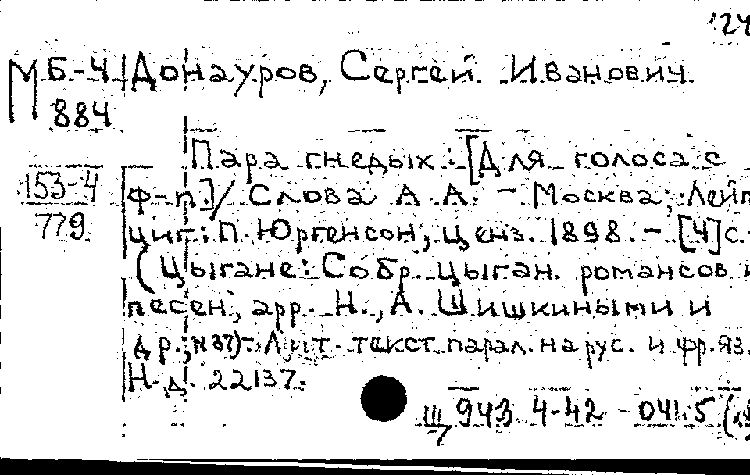 124
М Б-4 Донауров, Сергей Иванович.
884
Пара гнедых: [Для голоса с
153-4 ф-п.] / Слова А. А. - Москва; Лейп
779 циг: П. Юргенсон, ценз. 1898. - [4] с.
(Цыгане: Собр. цыган. романсов и
песен, арр. Н., А. Шишкиными и
др.; №37). Лит. текст парал. на рус. и фр. яз.
Н.д. 22137.
III 943 4-42 - 041.5